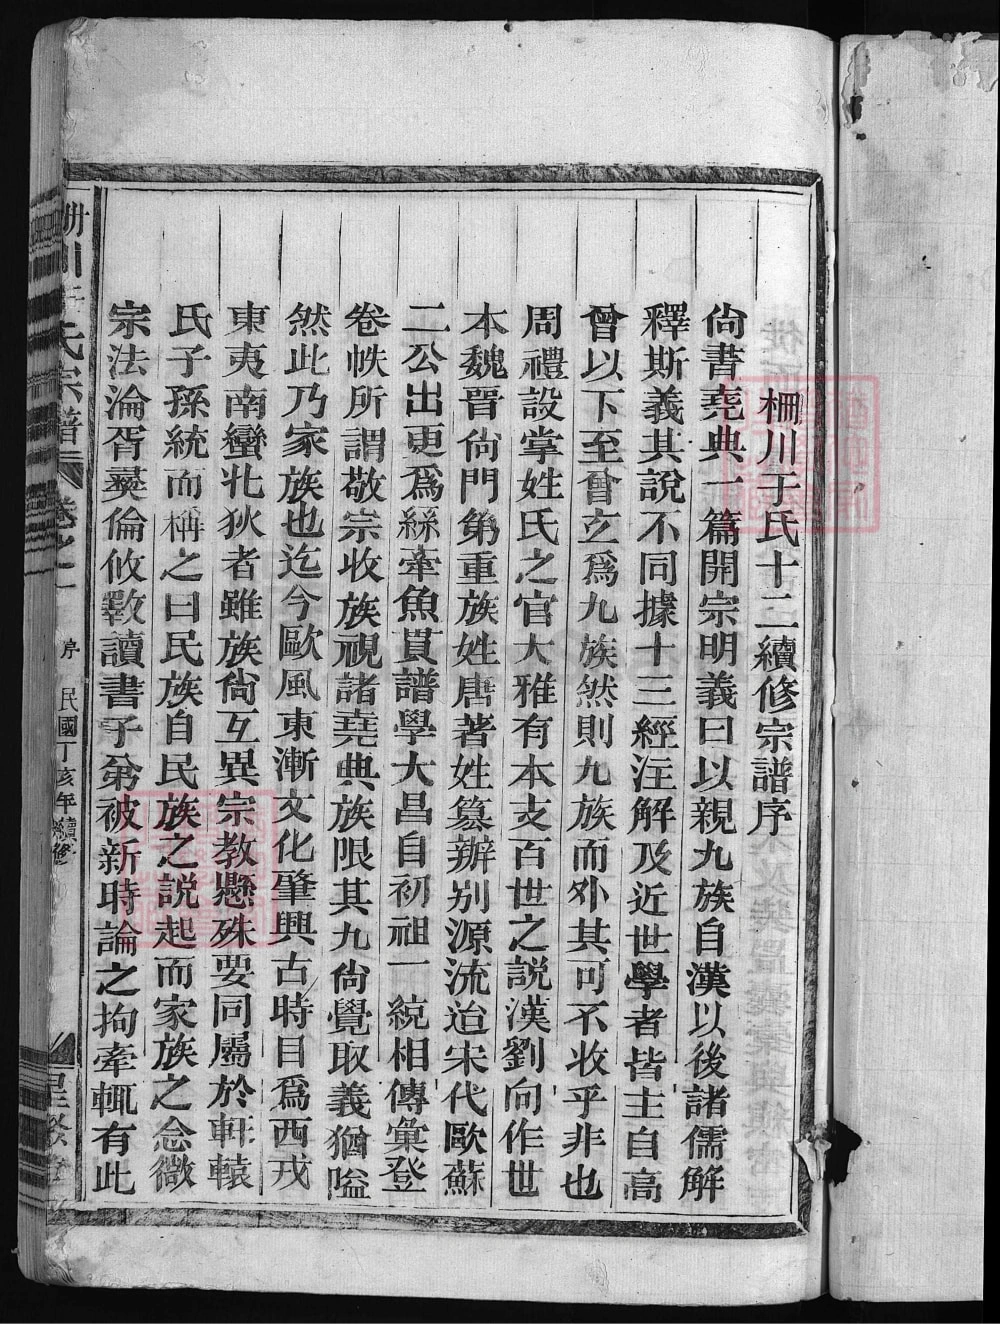 柵川于氏十二續修宗譜序
尙書堯典一篇開宗明義曰以親九族自漢以後諸儒解
釋斯義其說不同據十三經注解及近世學者皆主自高
曾以下至曾玄爲九族然則九族而外其可不收乎非也
周禮設掌姓氏之官大雅有本支百世之說漢劉向作世
本魏晉尙門第重族姓唐著姓纂辦别源流迨宋代歐蘇
二公出更爲絲牽魚貫譜學大昌自初祖一統相傳彙登
卷帙所謂敬宗收族視諸堯典族限其九尙覺取義猶嗌
然此乃家族也迄今歐風東漸文化肇興古時目爲西戎
東夷南蠻北狄者雖族尙互異宗教懸殊要同屬於軒轅
氏子孫統而稱之曰民族自民族之說起而家族之念微
宗法淪胥彞倫攸斁讀書子弟被新時論之拘牽輒有此
柵川于氏宗譜 卷之一 序 民國丁亥年續修